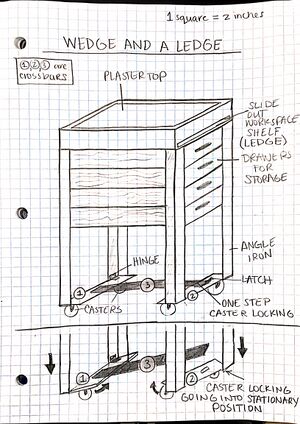 1 square = 2 inches
WEDGE AND A LEDGE
①,②,③ are
crossbars
PLASTER TOP
SLIDE
OUT
WORKSPACE
SHELF
(LEDGE)
DRAWERS
FOR
STORAGE
ANGLE
IRON
HINGE
LATCH
①
③
②
CASTERS
ONE STEP
CASTER LOCKING
①
③
②
CASTER LOCKING
GOING INTO STATIONARY
POSITION